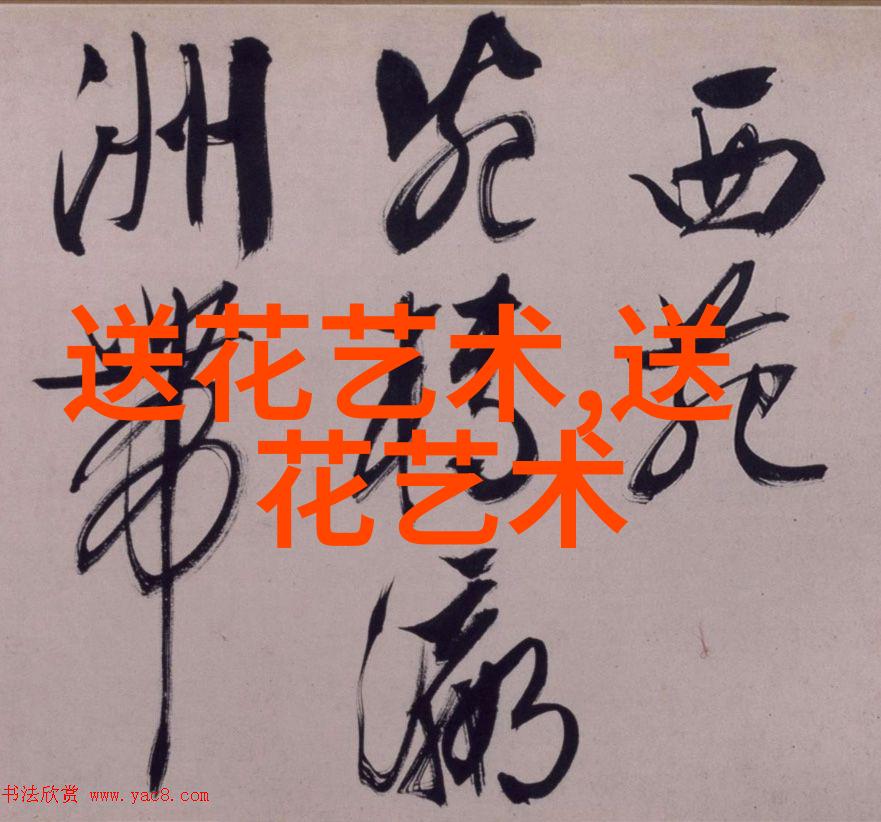 西苑
瀛
洲帶
送花艺术,送
花艺术
书法欣赏 www.yac8.com